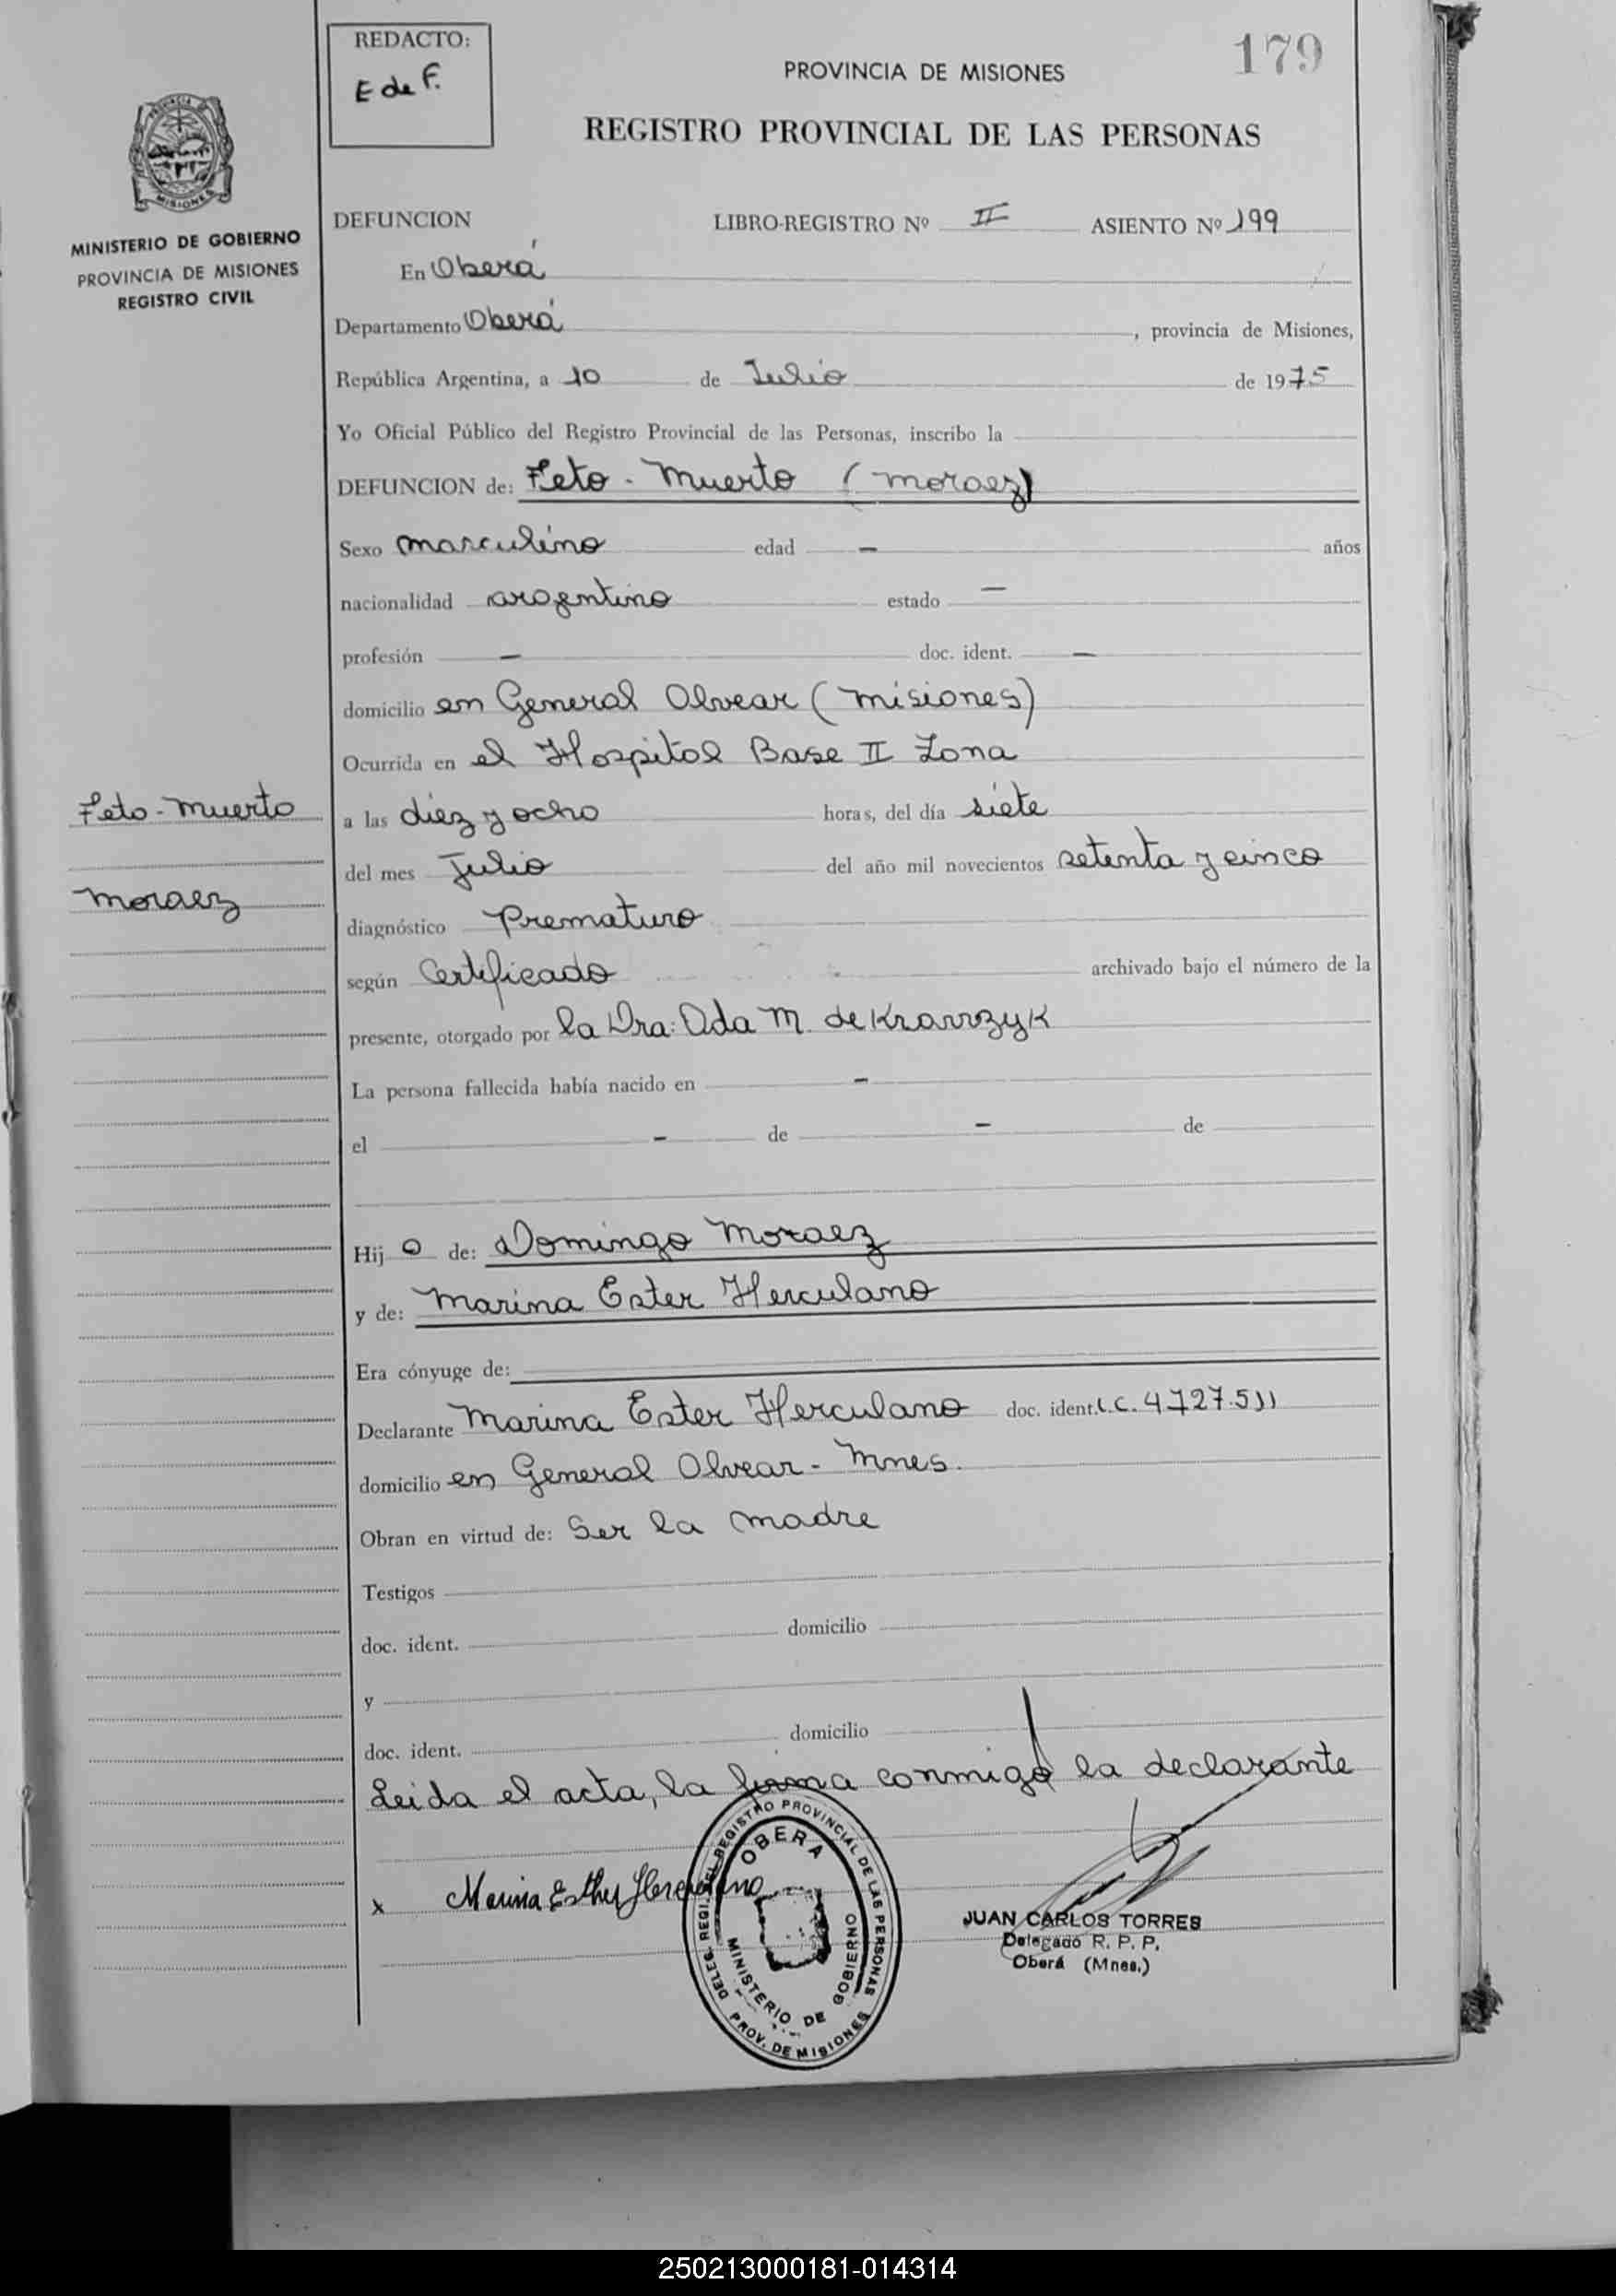 REDACTO:
E de F.
179
PROVINCIA DE MISIONES
REGISTRO PROVINCIAL DE LAS PERSONAS
MISIONES
MINISTERIO DE GOBIERNO
PROVINCIA DE MISIONES
REGISTRO CIVIL
DEFUNCION LIBRO-REGISTRO Nº II ASIENTO Nº 199
En Oberá
Departamento Oberá, provincia de Misiones,
República Argentina, a 10 de Julio de 1975
Yo Oficial Público del Registro Provincial de las Personas, inscribo la
DEFUNCION de: Feto - Muerto (Moraez)
Sexo masculino edad — años
nacionalidad argentino estado —
profesión — doc. ident. —
domicilio en General Alvear (Misiones)
Ocurrida en el Hospital Base II Zona
Feto - Muerto
Moraez
a las diez y ocho horas, del día siete
del mes Julio del año mil novecientos setenta y cinco
diagnóstico Prematuro
según Certificado archivado bajo el número de la
presente, otorgado por la Dra: Ada M. de
La persona fallecida había nacido en —
el — de — de
Hijo de: Domingo Moraez
y de: Marina Ester Herculano
Era cónyuge de:
Declarante Marina Ester Herculano doc. ident. L.C. 4.727.511
domicilio en General Alvear - Mnes.
Obran en virtud de: Ser la madre
Testigos
doc. ident. domicilio
y
doc. ident. domicilio
Leida el acta, la firma conmigo la declarante
x Marina Esther Herculano
DELEG. REGI. DEL REGISTRO PROVINCIAL DE LAS PERSONAS
OBERA
MINISTERIO DE GOBIERNO
PROV. DE MISIONES
JUAN CARLOS TORRES
Delegado R. P. P.
Oberá (Mnes.)
250213000181-014314